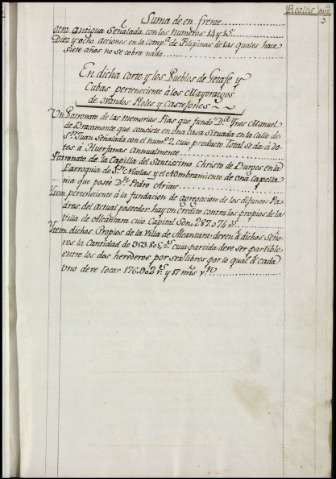 Reales
Suma de en frente
otra antigua Señalada con los numeros 14 y 15
Diez y ocho acciones en la comp.ª de Filipinas de las quales hace
siete años no se cobra nada
En dicha Corte y los Pueblos de Getafe y
Cubas perteneciente á los Mayorazgos
de Grandas Robles y Castrejones
Un Patronato de las memorias Pias que fundó D.ª Ynes Manuel
de Bracamonte que consiste en una Casa Situada en la Calle de
S.n Juan Señalada con el num.º 2, cuio producto Total se da á do
tes á Huerfanas Annualmente
Patronato de la Capilla del Santisimo Christo de Burgos en la
Parroquia de S.n Nicolas y el Nombramiento de una Capella
nia que posee D.n Pedro Arias
Ytem perteneciente á la fundacion de agregacion de los difuntos Pa
dres del actual poseedor hay un Credito contra los propios de la
Villa de Alcantara cuio Capital Son 247.576 r.s
Ytem dichos Propios de la Villa de Alcantara deven á dichos Seño
res la Cantidad de cuia partida deve ser partible
entre los dos herederos por ser libres por lo qual á cada
uno deve tocar 176.902 r.s y 17 mrs v.n